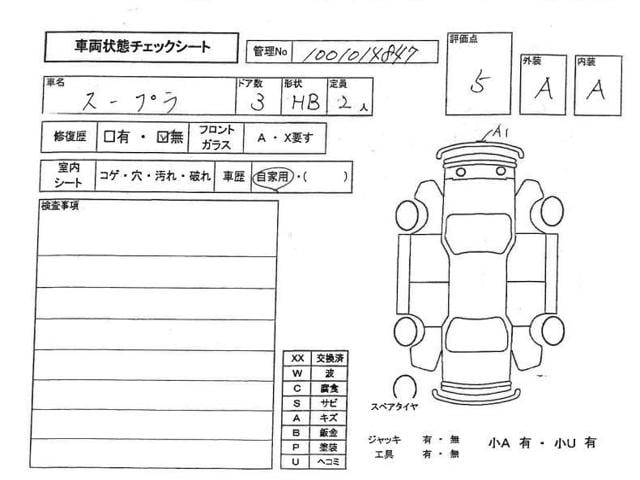 車両状態チェックシート
管理No 1001014847
評価点 5
外装 A
内装 A
車名 スープラ
ドア数 3
形状 HB
定員 2人
修復歴 □有・☑無
フロントガラス A・X要す
室内シート コゲ・穴・汚れ・破れ
車歴 自家用・( )
検査事項
A1
XX 交換済
W 波
C 腐食
S サビ
A キズ
B 鈑金
P 塗装
U ヘコミ
スペアタイヤ
ジャッキ 有・無
工具 有・無
小A 有・小U 有